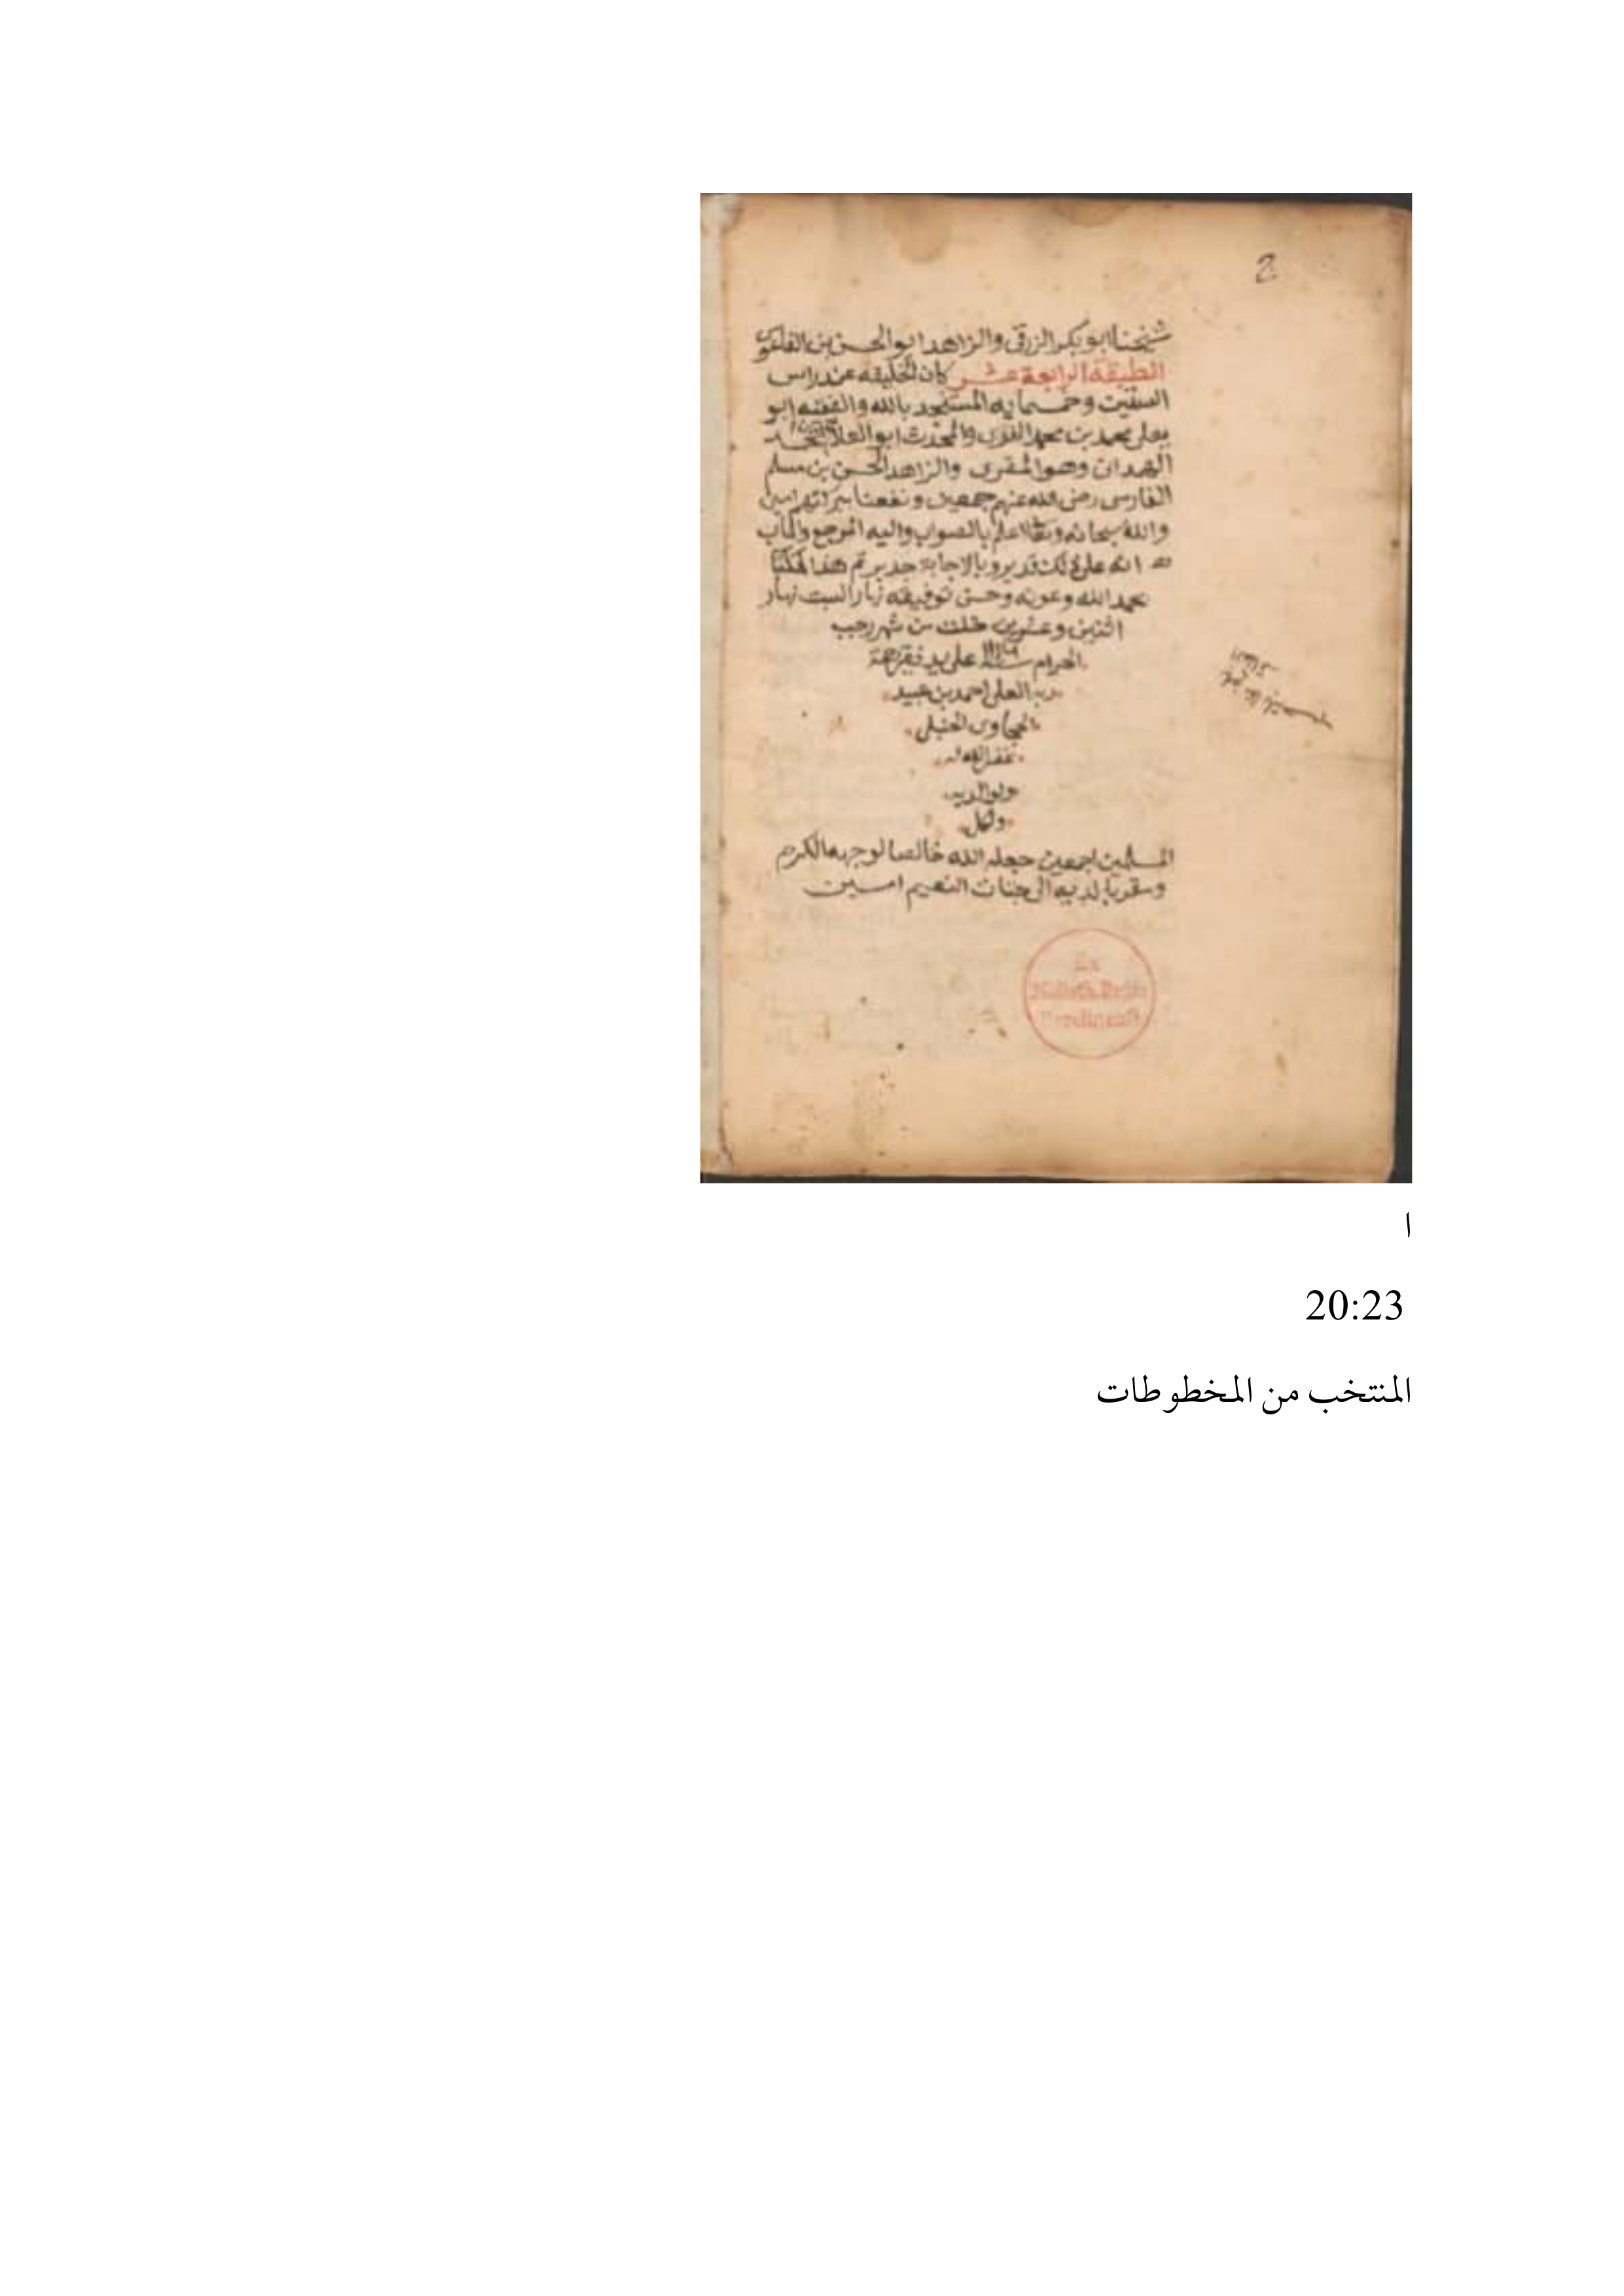 2
شيخنا ابو بكر الزرقي والزاهد ابو الحسن بن
الطبقة الرابعة عشر كان الخليفه عند راس
الستين وخمسمايه المستنجد بالله والفقيه ابو
يعلى محمد بن محمد والمحدث ابو العلا
الهمدانى وهو المقرى والزاهد الحسن بن مسلم
الفارسى رضى الله عنهم جمعين ونفعنا ببركاتهم امين
والله سبحانه وتعالى اعلم بالصواب واليه المرجع والماب
انه على ذلك قدير وبالاجابة جدير تم هذا الكتاب
بحمد الله وعونه وحسن توفيقه نهار السبت نهار
اثنين وعشرين خلت من شهر رجب
الحرام سنة على يد فقير رحمة
ربه العلى احمد بن عبيد
الحجاوى الحنبلى
غفر الله له
ولوالديه
ولكل
المسلمين اجمعين جعله الله خالصا لوجهه الكريم
ومقربا لديه الى جنات النعيم امين
ا
20:23
المنتخب من المخطوطات